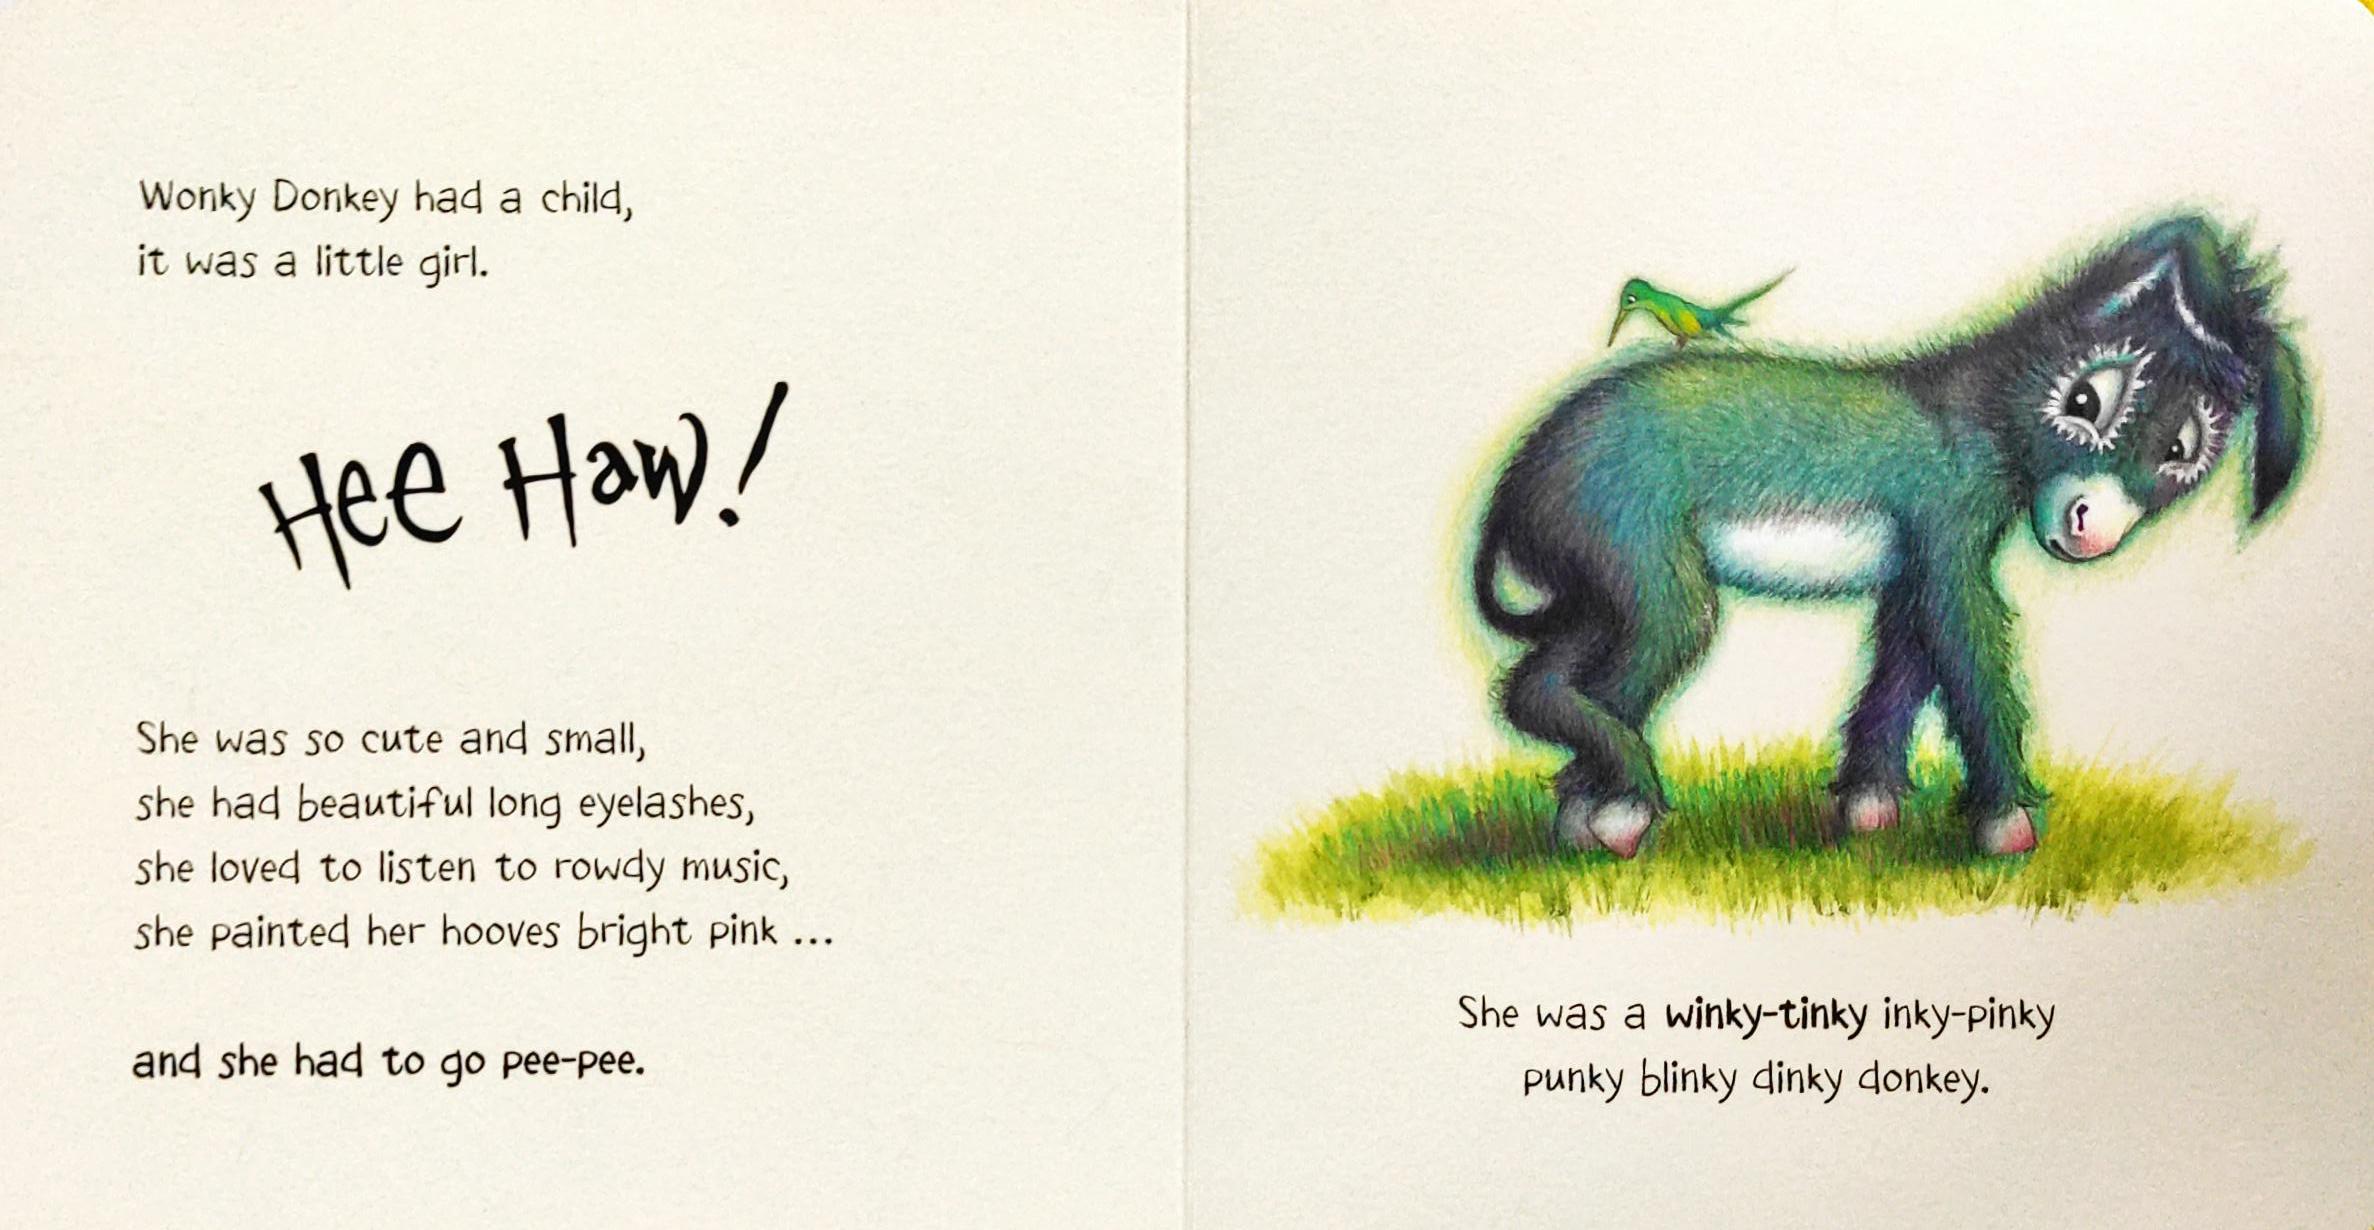 Wonky Donkey had a child,
it was a little girl.
Hee Haw!
She was so cute and small,
she had beautiful long eyelashes,
she loved to listen to rowdy music,
she painted her hooves bright pink ...
and she had to go pee-pee.
She was a winky-tinky inky-pinky
punky blinky dinky donkey.